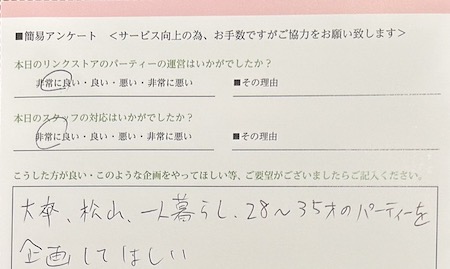 ■簡易アンケート <サービス向上の為、お手数ですがご協力をお願い致します>
本日のリンクストアのパーティーの運営はいかがでしたか?
非常に良い・良い・悪い・非常に悪い ■その理由
本日のスタッフの対応はいかがでしたか?
非常に良い・良い・悪い・非常に悪い ■その理由
こうした方が良い・このような企画をやってほしい等、ご要望がございましたらご記入ください。
大卒、松山、一人暮らし、28~35才のパーティーを
企画してほしい